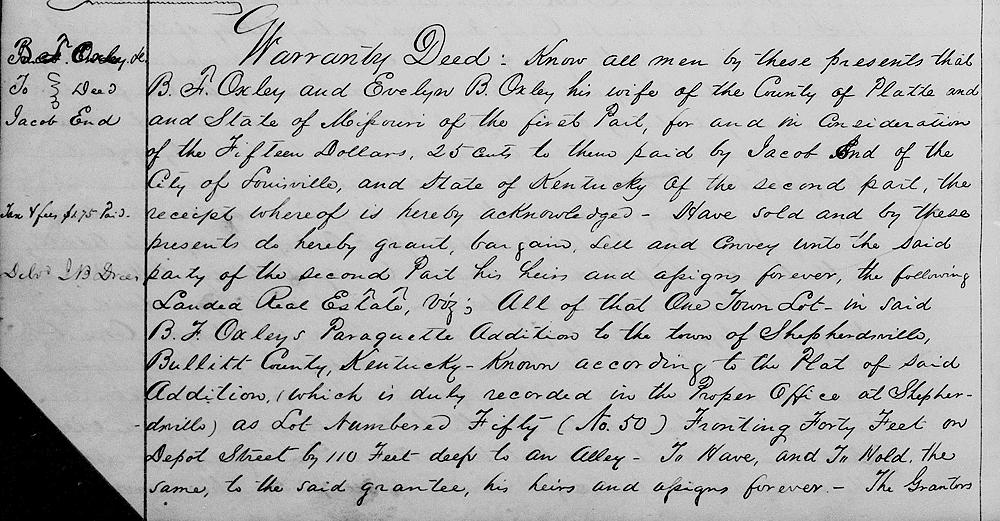 B. F. Oxley &c.
To Deed
Jacob End
Tax & fees $1.75 Paid.
Warranty Deed: Know all men by these presents that
B. F. Oxley and Evelyn B. Oxley his wife of the County of Platte and
and State of Missouri of the first Part, for and in Consideration
of the Fifteen Dollars, 25 cuts to them paid by Jacob End of the
City of Louisville, and State of Kentucky Of the second part, the
receipt whereof is hereby acknowledged - Have sold and by these
presents do hereby grant, bargain, Sell and Convey unto the said
party of the second Part his heirs and assigns forever, the following
Landed Real Estate, Viz; All of that One Town Lot - in said
B. F. Oxleys Paraquette Addition to the town of Shepherdsville,
Bullitt County, Kentucky - Known according to the Plat of said
Addition, (which is duly recorded in the Proper Office at Shepher-
dsville) as Lot Numbered Fifty (No. 50) Fronting Forty Feet on
Depot Street by 110 Feet deep to an Alley - To Have, and To Hold, the
same, to the said grantee, his heirs and assigns forever. - The Grantors